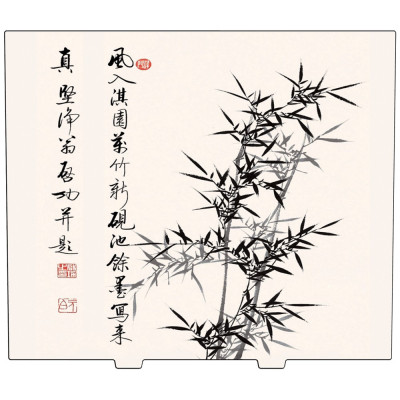 風入淇園萬竹新硯池餘墨寫来
真堅淨翁启功并題